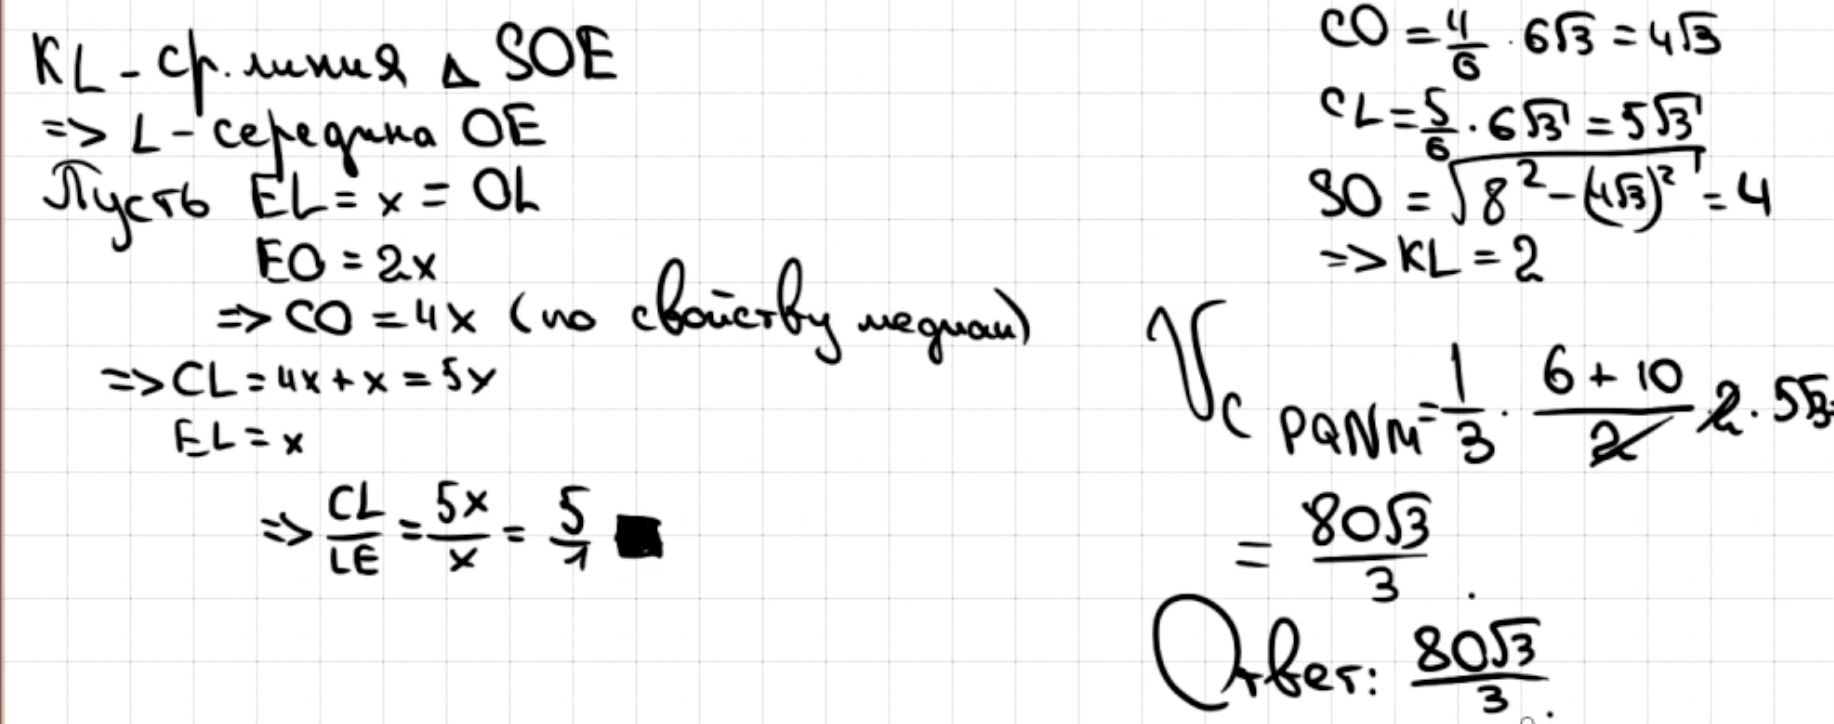 KL - ср. линия △ SOE
=> L - середина OE
Пусть EL = x = OL
EO = 2x
=> CO = 4x (по свойству медиан)
=> CL = 4x + x = 5x
EL = x
=> CL/LE = 5x/x = 5/1 ■
CO = 4/6 · 6√3 = 4√3
CL = 5/6 · 6√3 = 5√3
SO = √(8² - (4√3)²) = 4
=> KL = 2
V_CPQNM = 1/3 · (6 + 10)/2 · 2 · 5√3
= 80√3/3.
Ответ: 80√3/3.